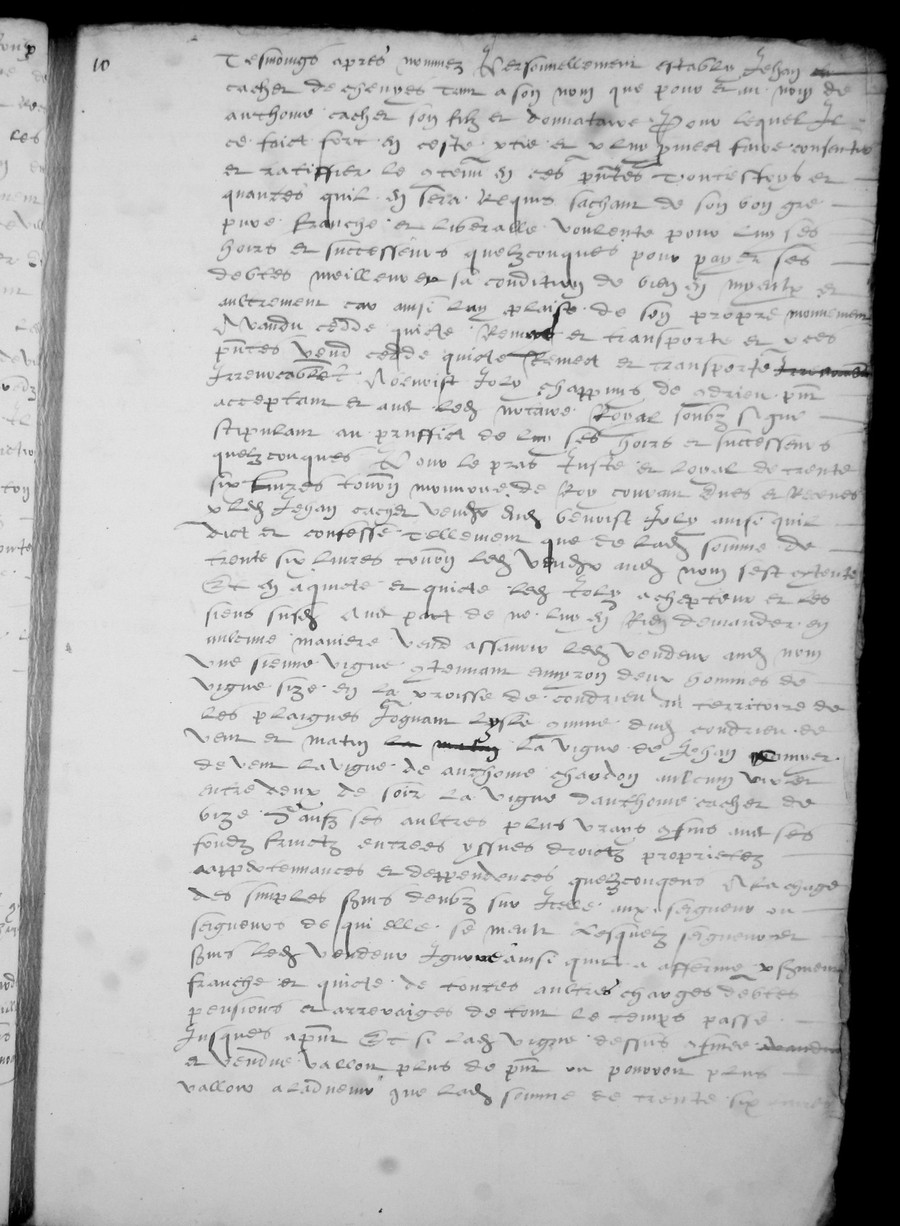 10
Tesmoings apres nommez Personnellement estably Jehan
cacher de cheuyes tant a son nom que pour et au nom de
anthoine cacher son filz et donnataire Pour lequel Il
ce faict fort en ceste ptie et pluy pmect faire consentir
et ratiffier le 9tenu en ces pntes Toutesfoys et
quantes quil en sera Requis sachant de son bon gre
pure franche et liberalle voulente pour luy ses
hoirs et successeurs quelzconques pour payer ses
debtes meilleurer sa condition de bien en myeulx et
aultrement car ainsi luy plaist de son propre mouuement
A vandu cedde quicte Remect et transporte et p ces
pntes vend cedde quicte Remect et transporte
Irreuocablet A benoist Joly chappuis de 9drieu pnt
acceptant et auec led notaire Royal soubz signe
stipulant au pruffict de luy ses hoirs et successeurs
quelzconques Pour le pris Juste et loyal de trente
six Liures tourn monnoye de Roy courant dues et Receues
p led Jehan cacher vendr dud benoist Joly ainsi quil
dict et confesse Tellement que de lad somme de
trente six liures tourn led vendr aud nom sest 9tente
Et en a quicte et quicte led Joly achepteur et les
siens susd Auec pact de ne luy en Rien demander en
aulcune maniere vend assauoir led vendeur aud nom
vne sienne vigne 9tenant enuyron deux hommes de
vigne size en la proisse de condrieu au territoire de
les plaignes Joignant lysle 9mune dud condrieu de
vent et matin la vigne de Jehan
de vent la vigne de anthoine chardon aulcun vivier
entre deux de soir la vigne danthoine cacher de
bize Saufz ses aultres plus vrays 9fins auec ses
fondz fruictz entrees yssues droictz proprietez
appptenances et deppendences quelzconques A la charge
des simples suis deubz sur Icelle aux seigneur ou
seigneurs de qui elle se meult Lesquelz seigneur et
suis led vendeur Ignore ainsi quil a afferme
franche et quicte de toutes aultres charges debtes
pensions et arreraiges de tout le temps passe
Jusques a pnt Et si lad vigne dessus 9finee
et vendue valloit plus de pnt ou pouuoit plus
valloir a laduenir que lad somme de trente six